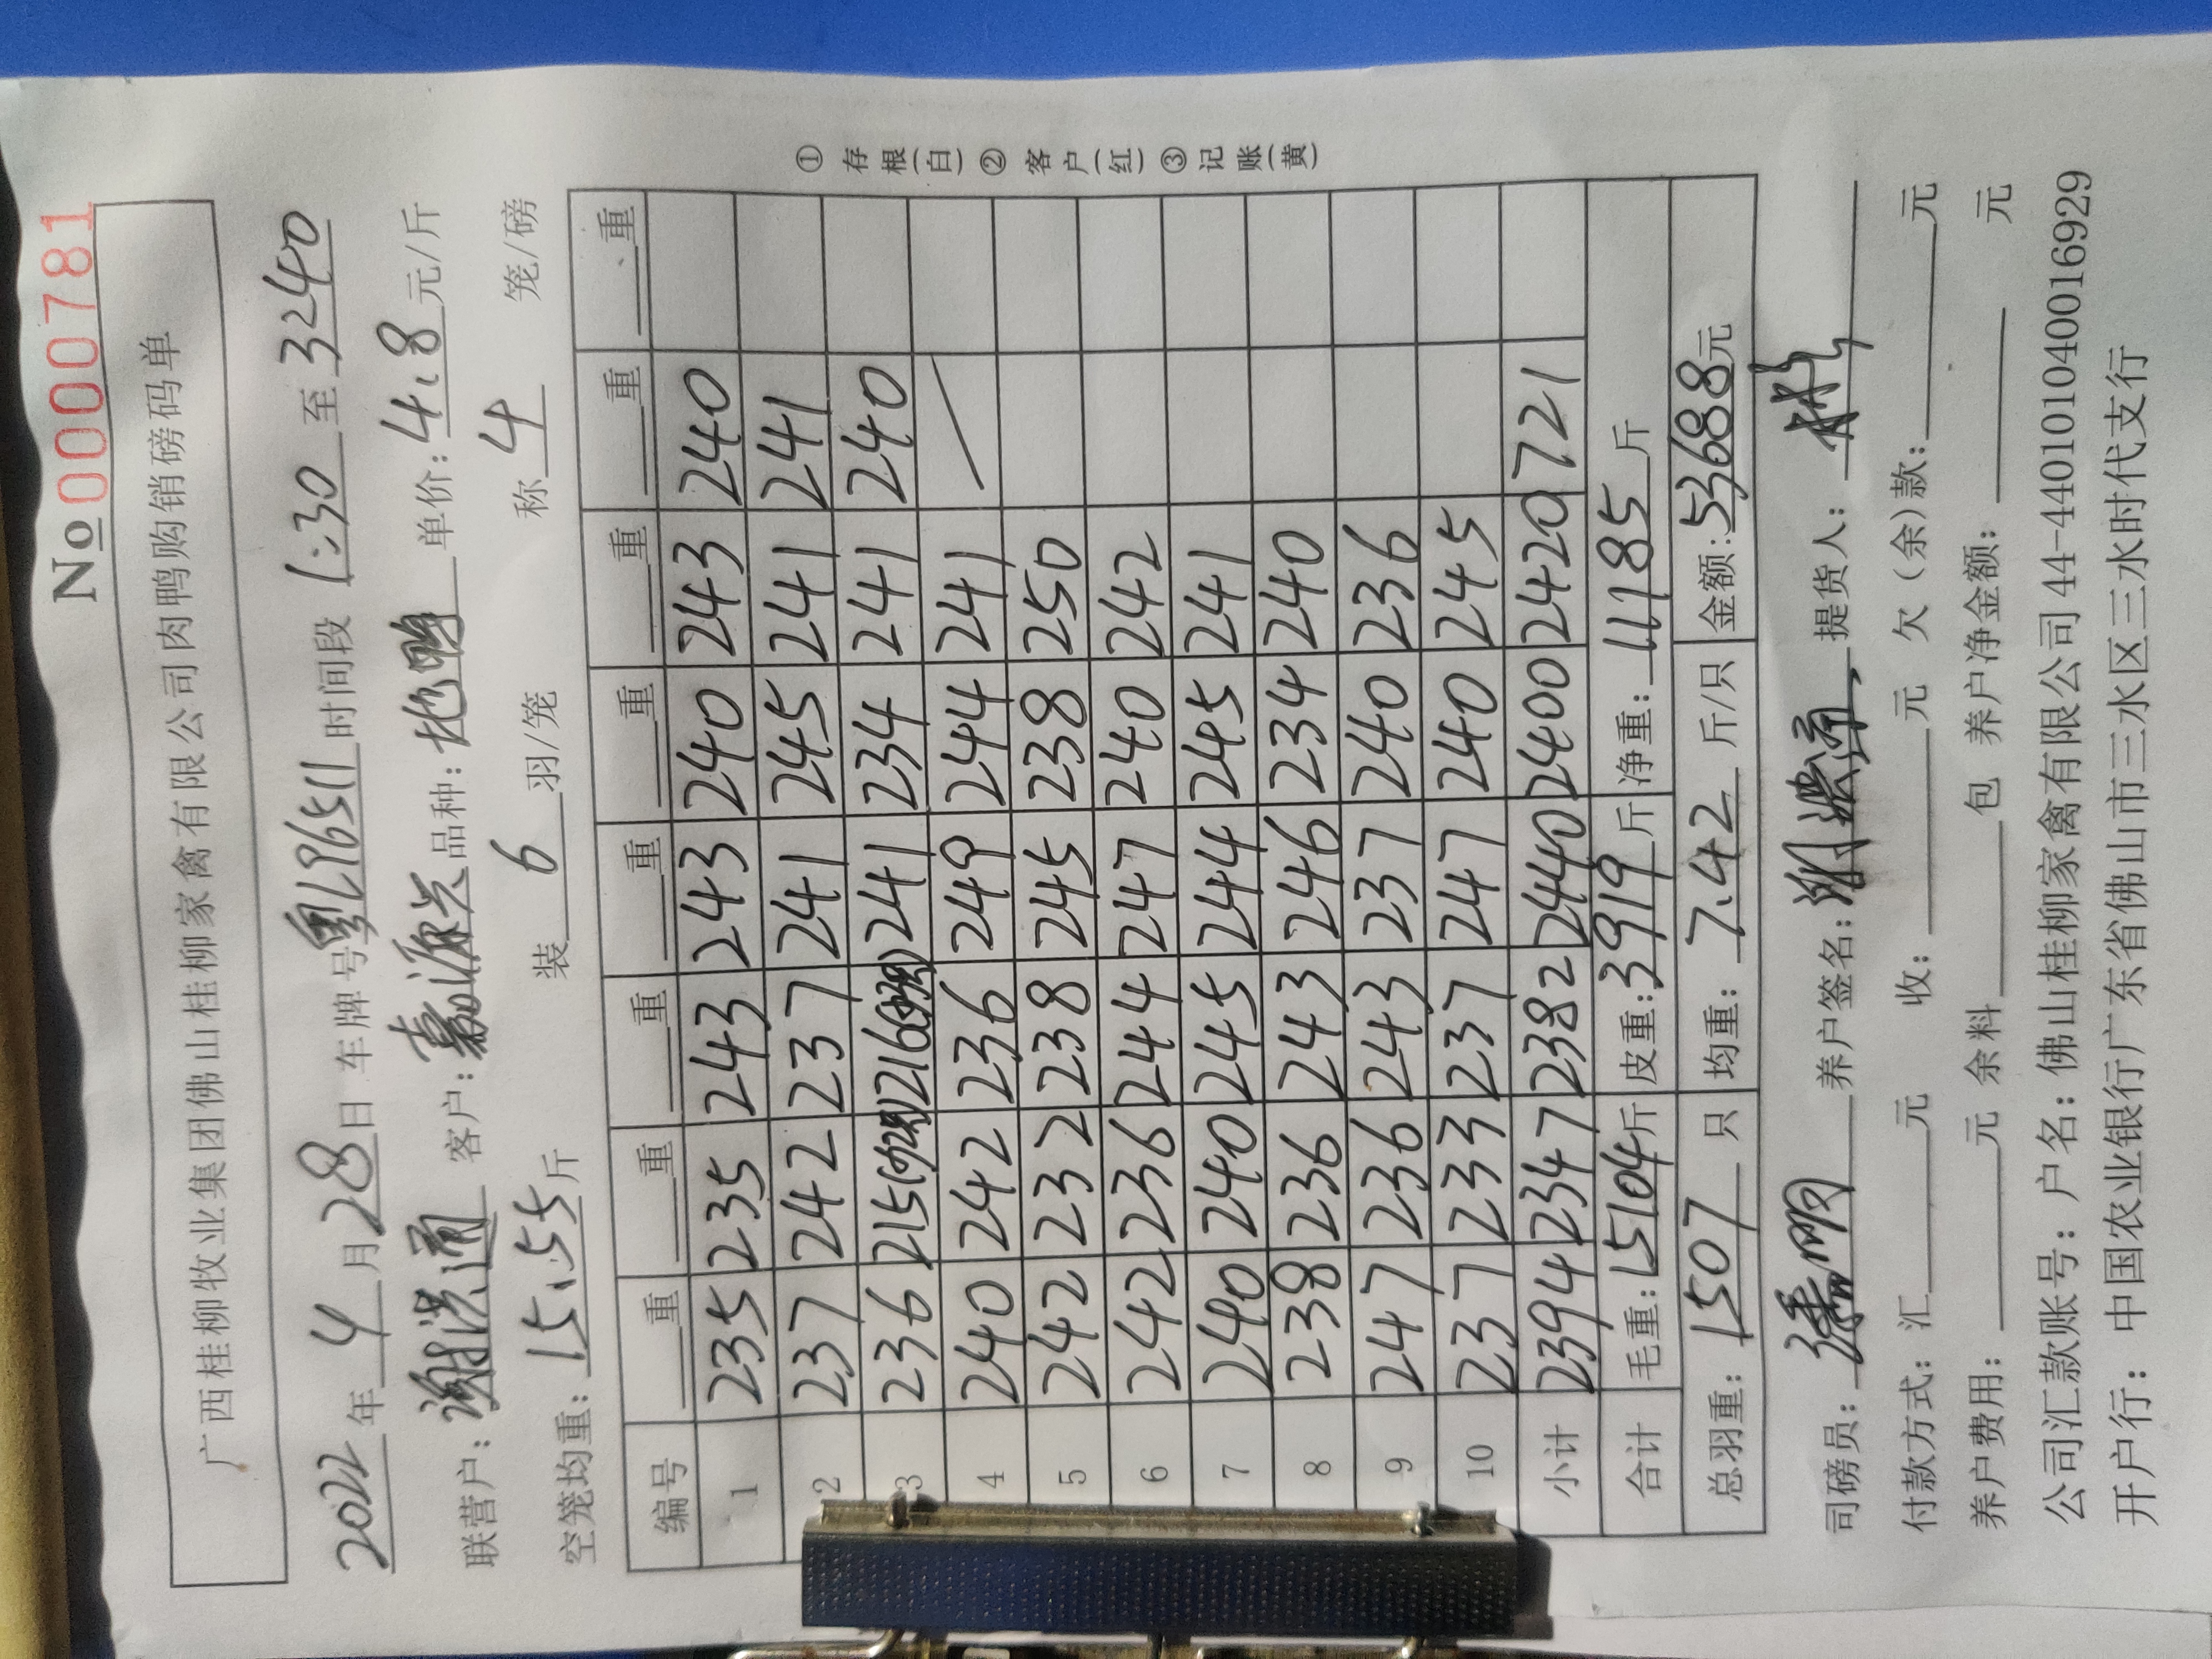 No 0000781
广西桂柳牧业集团佛山桂柳家禽有限公司肉鸭购销磅码单
2022年4月28日 车牌号粤L9651时间段1:30至3240
联营户:谢洪通 客户:嘉源兴 品种: 单价:4.8元/斤
空笼均重:15.55斤 装6羽/笼 称4笼/磅
编号 重 重 重 重 重 重 重 重
1 235 235 243 243 240 243 240
2 237 242 237 241 245 241 241
3 236 215 216 241 234 241 240
4 240 242 236 249 244 241
5 242 232 238 245 238 250
6 242 236 244 247 240 242
7 240 240 245 244 245 241
8 238 236 243 246 234 240
9 247 236 243 237 240 236
10 237 233 237 247 240 245
小计 2394 2347 2382 2440 2400 2420 721
合计 毛重:15104斤 皮重:3919斤 净重:11185斤
总羽重:1507只 均重:7.42斤/只 金额:53688元
①存根(白)②客户(红)③记账(黄)
司磅员: 养户签名: 提货人:
付款方式:汇 元 收: 元 欠(余)款: 元
养户费用: 元 余料 包 养户净金额: 元
公司汇款账号:户名:佛山桂柳家禽有限公司44-440101040016929
开户行:中国农业银行广东省佛山市三水区三水时代支行